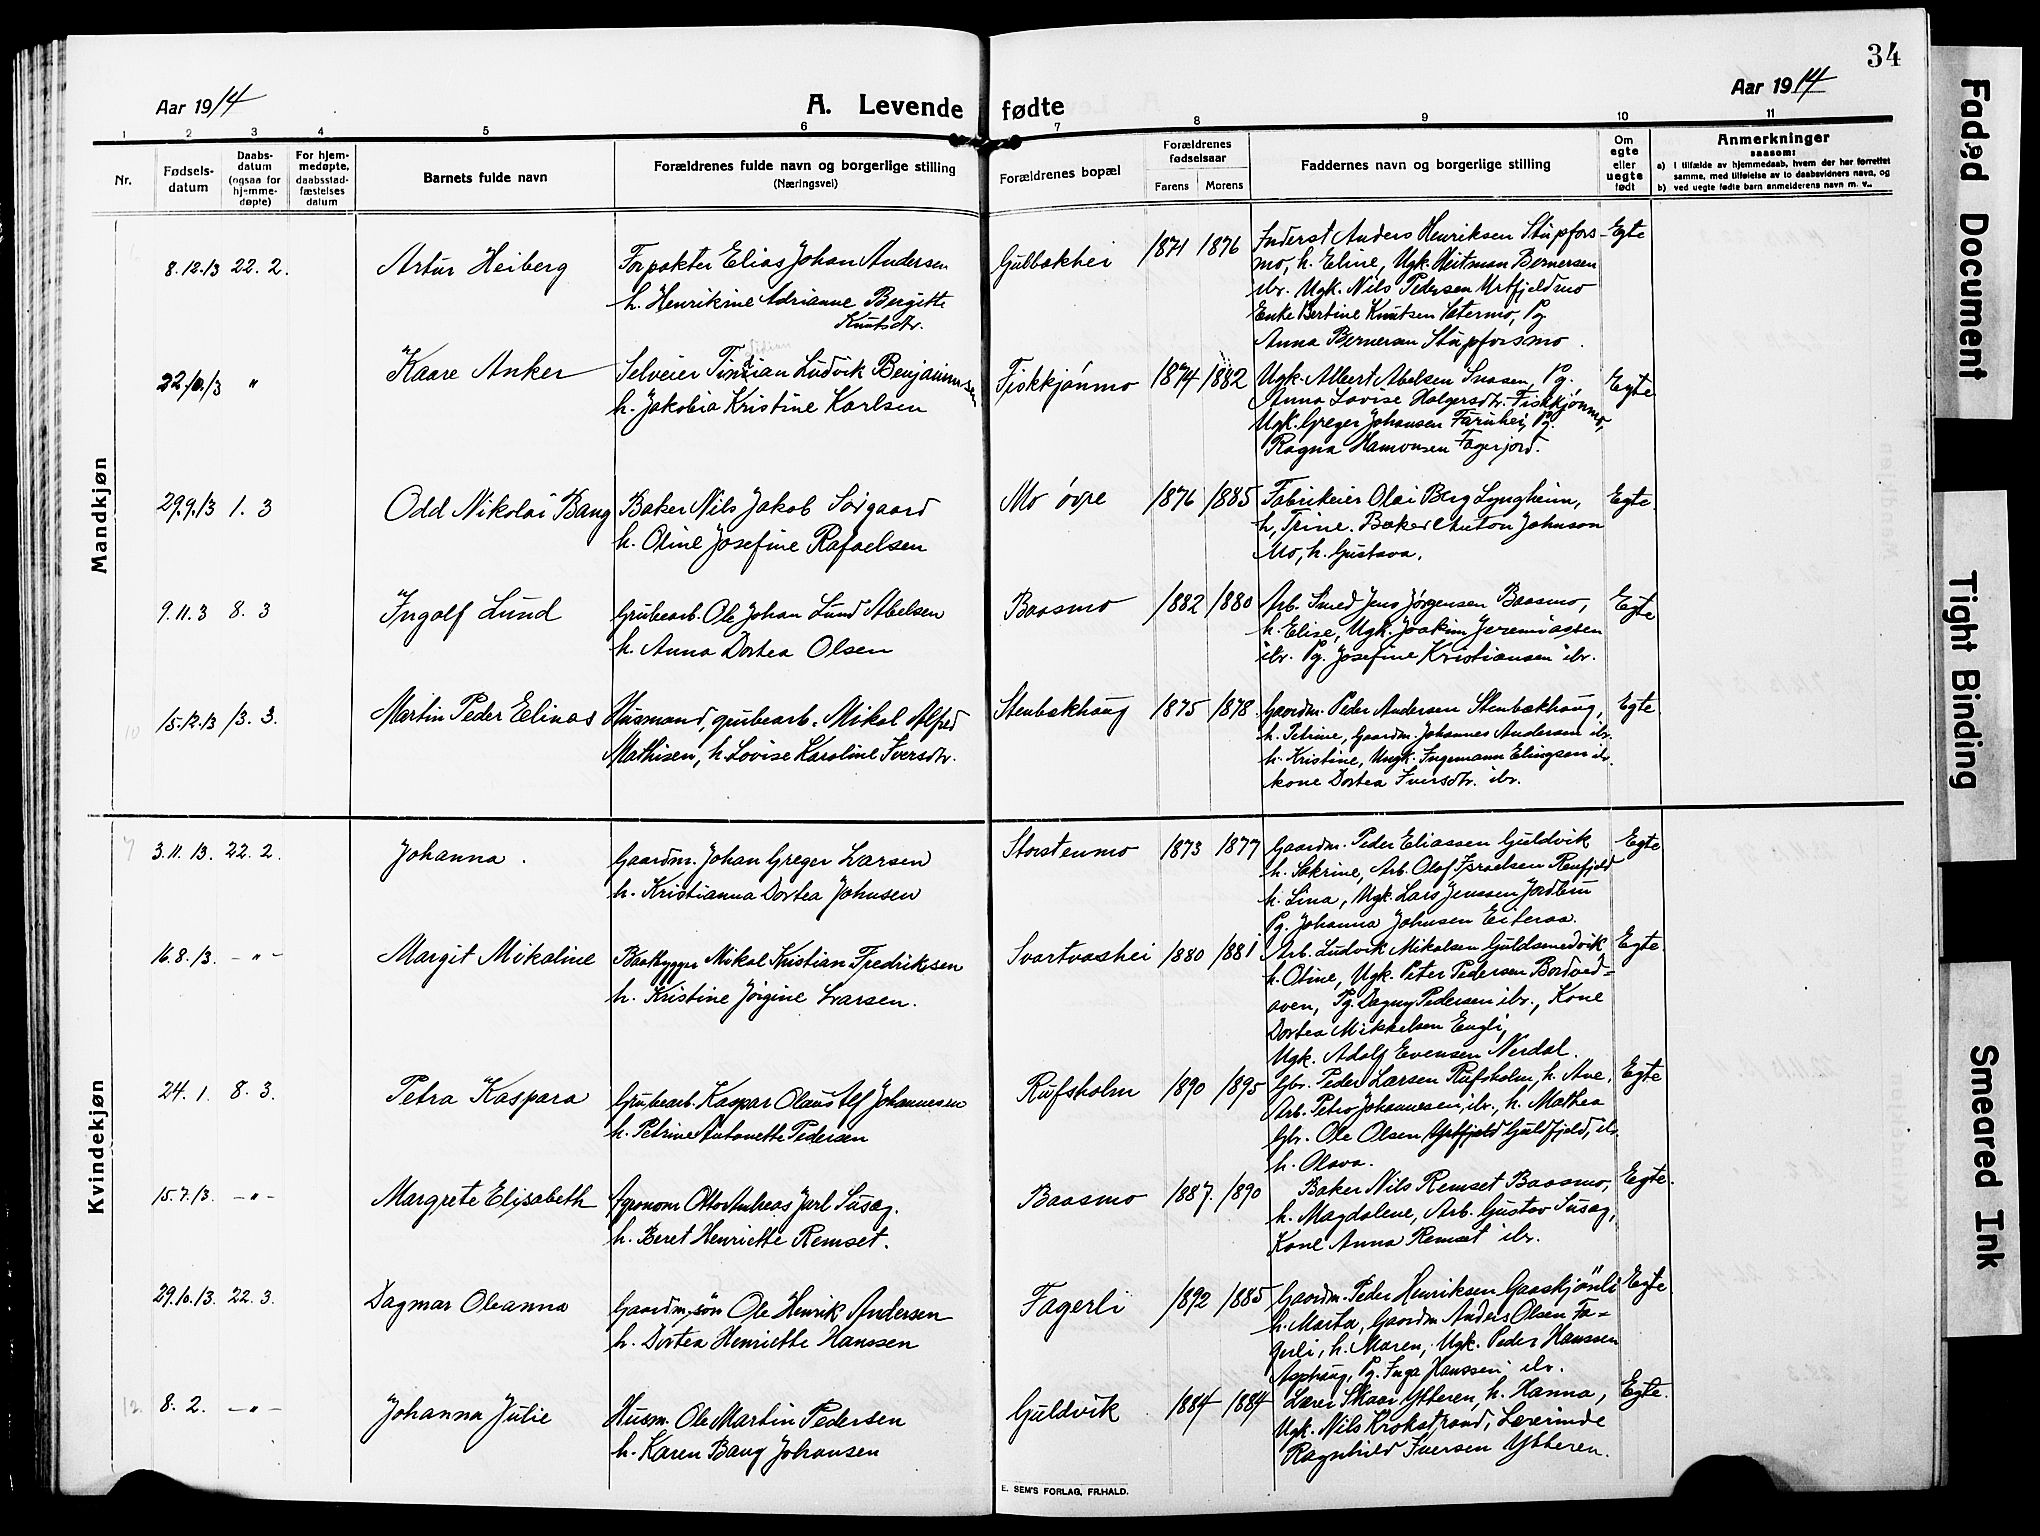 34
Aar 1914
A. Levende fødte
Aar 1914
1 2 3 4 5 6 7 8 9 10 11
Nr.
Fødsels-
datum
Daabs-
datum
(ogsaa for
hjemme-
døpte)
For hjem-
medøpte,
daabsstad-
fæstelses
datum
Barnets fulde navn
Forældrenes fulde navn og borgerlige stilling
(Næringsvei)
Forældrenes bopæl
Forældrenes
fødselsaar
Farens Morens
Faddernes navn og borgerlige stilling
Om
egte
eller
uegte
født
Anmerkninger
saasom:
a) I tilfælde av hjemmedaab, hvem der har forrettet
samme, med tilføielse av to daabsvidners navn, og
b) ved uegte fødte barn anmelderens navn m. v..
Mandkjøn
8.12.13 22. 2. Artur Heiberg
Forpakter Elias Johan Andersen
h. Henrikine Adrianne Bergitte
Knutsdtr.
Gulbakhei 1871 1876
Inderst Anders Henriksen Stupfors-
mo, h. Eline, Ugk. Heitman Bernersen
ibr. Ugk. Nils Pedersen Urtfjeldmo
Enke Bertine Knutsen Sætermo, Pg
Anna Bernersen Stupforsmo.
Egte
22.10.13 " Kaare Anker
Selveier Ludvik Benjaminsen
h. Jakobia Kristine Karlsen
Fiskkjønmo 1874 1882
Ugk. Albert Abelsen Snasen, Pg.
Anna Lovise Holgersdtr. Fiskkjønmo,
Ugk. Greger Johansen Faruhei, Pg.
Ragna Hamonsen Fagerjord.
Egte
29.9.13 1. 3 Odd Nikolai Bang
Baker Nils Jakob Sørgaard
h. Oline Josefine Rafaelsen
Mo øvre 1876 1885
Fabrikeier Olai Berg Lyngheim,
h, Trine. Baker Anton Johnson
Mo, h. Gustava.
Egte.
9.11.3 8. 3 Ingolf Lund
Grubearb. Ole Johan Lund Abelsen
h. Anna Dortea Olsen
Baasmo 1882 1880
Arb. Smed Jens Jørgensen Baasmo,
h. Elise, Ugk. Joakim Jeremiassen
ibr. Pg. Josefine Kristiansen ibr.
Egte
10 15.12.13 13. 3. Martin Peder Elinas
Husmand, grubearb. Mikal Alfred
Mathisen, h. Lovise Karoline Iversdtr.
Stenbækhaug 1875 1878.
Gaardm. Peder Andersen Stenbækhaug,
h. Petrine, Gaardm. Johannes Andersen ibr.
h. Kristine, Ungk. Ingemann Elingsen ibr.
kone Dortea Iversdtr. ibr.
Egte
Kvindekjøn
7 3.11.13. 22. 2. Johanna.
Gaardm. Johan Greger Larsen
h. Kristianna Dortea Johnsen
Storstenmo 1873 1877
Gaardm. Peder Eliassen Guldvik
h. Sakrine, Arb. Olof Israelsen Renfjeld
h. Lina, Ugk. Lars Jenssen Jordbru
Pg. Johanna Johnsen Eiteraa.
Egte
16.8.13. -"- Margit Mikaline
Baatbygger Mikal Kristian Fredriksen
h. Kristine Jørgine Larsen.
Svartvashei 1880 1881
Arb. Ludvik Mikalsen Guldsmedvik
h. Oline, Ugk. Peter Pedersen Bordved-
aven, Pg. Dagny Pedersen ibr., Kone
Dortea Mikkelsen Engli,
Ugk. Adolf Evensen Nerdal.
Egte.
24. 1. 8. 3. Petra Kaspara
Grubearb. Kaspar Olaus Alf Johannesen
h. Petrine Antonette Pedersen
Rufsholm 1890 1895
Gbr. Peder Larsen Rufsholm, h. Ane,
Arb. Petro Johannesen, ibr., h. Mathea
Gbr. Ole Olsen Urtfjeld Guldfjeld, ibr
h. Olava.
Egte
15.7.13. -"- Margrete Elisabeth
Agronom Otto Andreas Jarl Susag.
h. Beret Henriette Remset.
Baasmo 1887. 1890
Baker Nils Remset Baasmo,
h. Magdalene, Arb. Gustav Susag,
Kone Anna Remset ibr.
Egte.
29.10.13. 22. 3. Dagmar Oleanna
Gaardm.søn Ole Henrik Andersen
h. Dortea Henriette Hanssen
Fagerli 1892 1885
Gaardm. Peder Henriksen Gaaskjønli
h. Marta, Gaardm Anders Olsen Fa-
gerli, h. Maren, Ugk. Peder Hanssen
Asphaug, Pg. Inga Hanssen ibr.
Egte
12. 8. 2. -"- Johanna Julie
Husm. Ole Martin Pedersen
h. Karen Bang Johansen
Guldvik 1884 1884
Lærer Skaar Ytteren, h. Hanna,
Ugk. Nils Krokstrand, Lærerinde
Ragnhild Iversen Ytteren.
Egte.
E. SEM'S FORLAG, FR.HALD.
Faded Document
Tight Binding
Smeared Ink